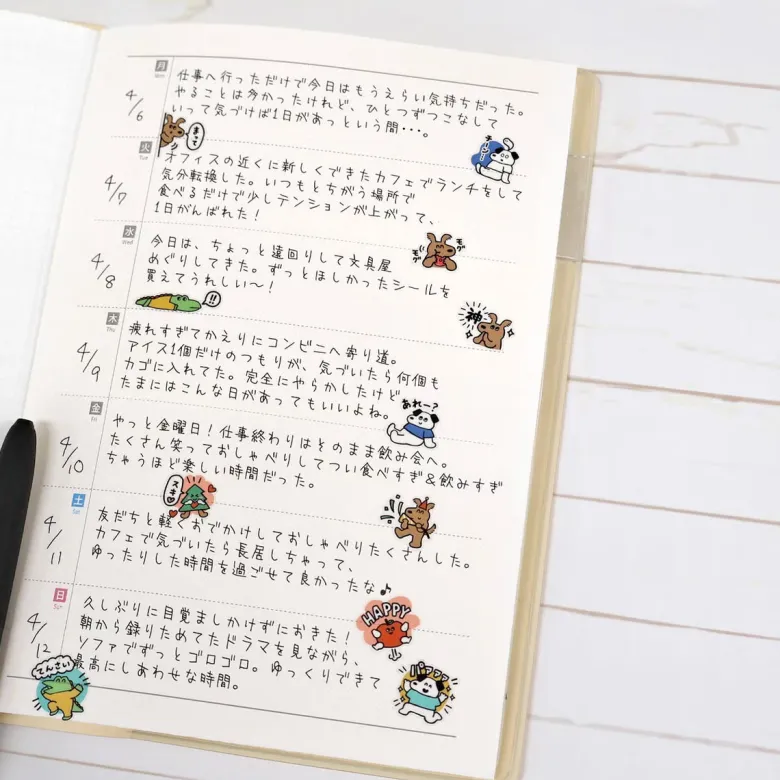 月
Mon
4/6
仕事へ行っただけで今日はもうえらい気持ちだった。
やることは多かったけれど、ひとつずつこなして
いって気づけば1日があっという間・・・。
まって
チーン…
火
Tue
4/7
オフィスの近くに新しくできたカフェでランチをして
気分転換した。いつもとちがう場所で
食べるだけで少しテンションが上がって、
1日がんばれた!
モグ
モグ
水
Wed
4/8
今日は、ちょっと遠回りして文具屋
めぐりしてきた。ずっとほしかったシールを
買えてうれしい〜!
!!
神
木
Thu
4/9
疲れすぎてかえりにコンビニへ寄り道。
アイス1個だけのつもりが、気づいたら何個も
カゴに入れてた。完全にやらかしたけど
たまにはこんな日があってもいいよね。
あれー?
金
Fri
4/10
やっと金曜日!仕事終わりはそのまま飲み会へ。
たくさん笑っておしゃべりしてつい食べすぎ&飲みすぎ
ちゃうほど楽しい時間だった。
スキ♡
土
Sat
4/11
友だちと軽くおでかけしておしゃべりたくさんした。
カフェで気づいたら長居しちゃって、
ゆったりした時間を過ごせて良かったな♪
日
Sun
4/12
久しぶりに目覚ましかけずにおきた!
朝から録りためてたドラマを見ながら、
ソファでずっとゴロゴロ。ゆっくりできて
最高にしあわせな時間。
HAPPY
てんさい